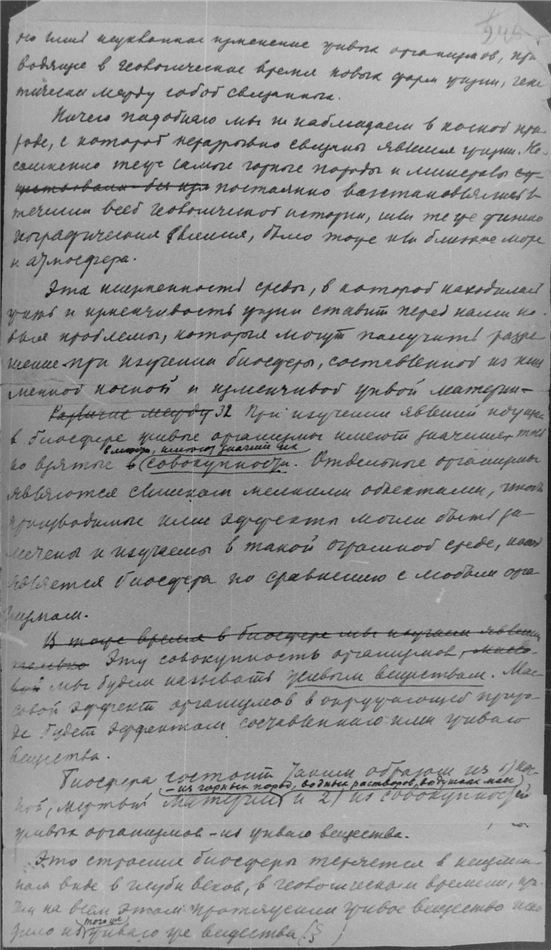 945
его глаз неуклонное изменение живых организмов, при
водящее в геологическое время новых форм жизни, гене
тически между собой связанных.
Ничего подобного мы не наблюдаем в косной при
роде, с которой неразрывно связаны явления жизни. Не
сомненно те же самые горные породы и минералы су
постоянно восстановлялись в
течении всей геологической истории, шли те же физико
географические явления, было то же или близкое море
и атмосфера.
Эта неизменность среды, в которой находилась
жизнь и изменчивость жизни ставит перед нами но
вые проблемы, которые могут получить разре
шение при изучении биосферы, составленной из неиз
менной косной и изменчивой живой материи
Различие между 32 При изучении явлений идущих
в биосфере живые организмы имеют значение толь
ко взятые в совокупности. Отдельные организмы
являются слишком мелкими объектами, чтобы
производимые ими эффекты могли быть за
мечены и изучаемы в такой огромной среде, какой
является биосфера по сравнению с любым орга
низмом.
В то же время в биосфере мы изучаем явления
Эту совокупность организмов,
мы будем называть живым веществом. Мас
совой эффект организмов в окружающей приро
де будет эффектом составленного ими живого
вещества.
Биосфера состоит таким образом из 1) кос
- из горных пород, водных растворов, воздушных масс
ной, мертвой материи и 2) из совокупностей
живых организмов - из живого вещества.
Это строение биосферы теряется в неизмен
ном виде в глуби веков, в геологическом времени, при
чем на всем этом протяжении живое вещество исхо
дило из того же живого же вещества (§ )